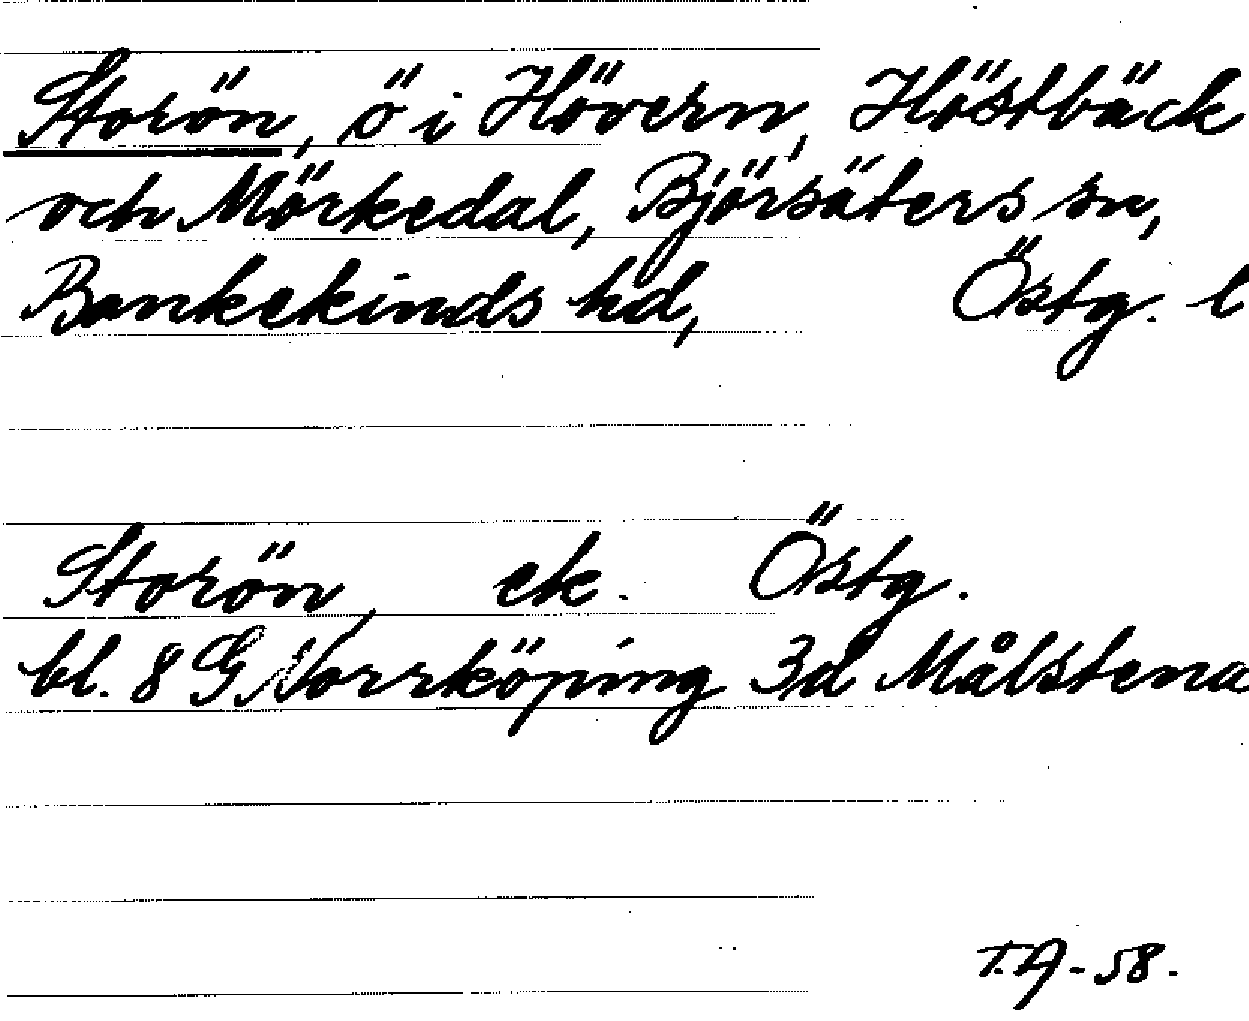 Storön, ö i Hövern, Höstbäck
och Mörkedal, Björsäters sn,
Bankekinds hd, Östg. l
Storön, ek. Östg.
bl. 8 G Norrköping 3d Målstena
T.A-58.